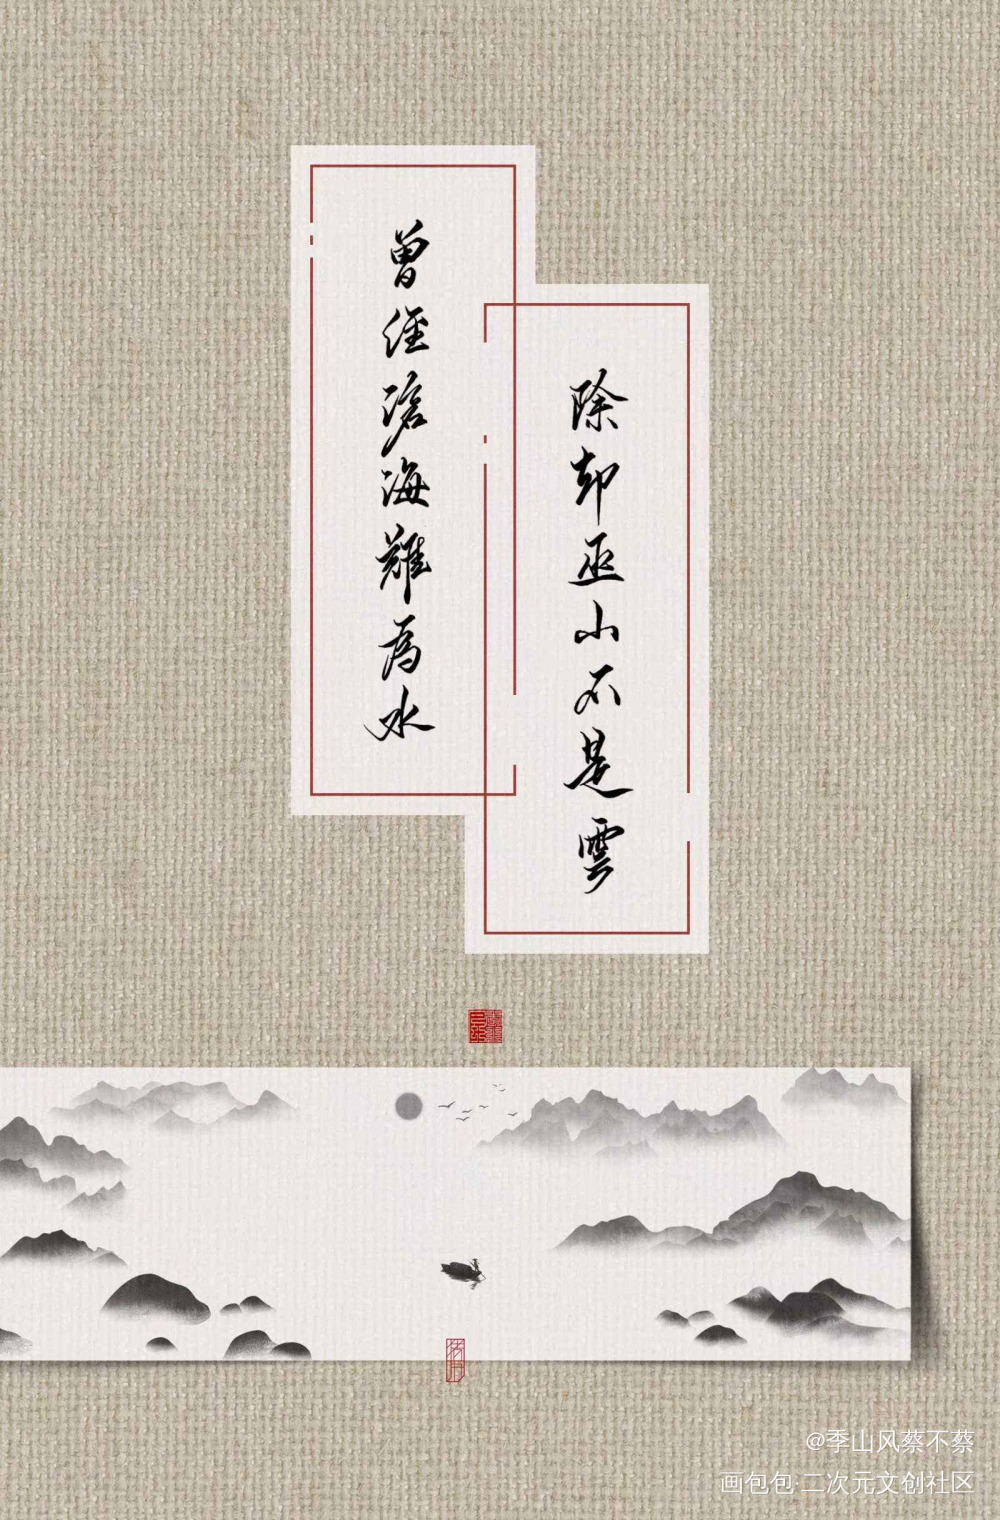 曾經滄海難為水
除却巫山不是雲
@季山风蔡不蔡
画包包·二次元文创社区